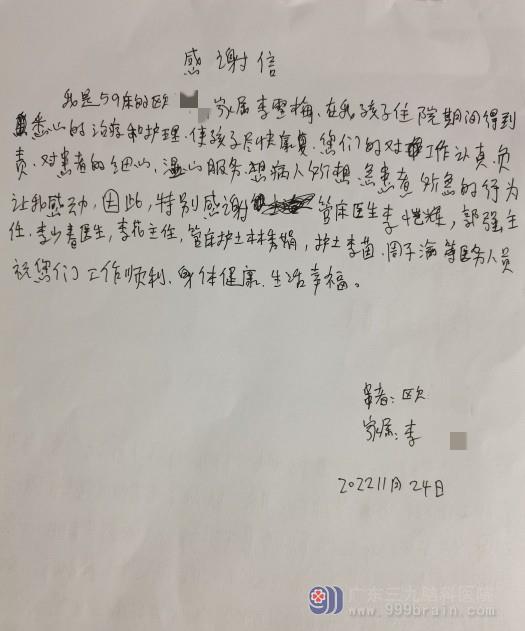 感谢信
我是59床的欧 家属李雪梅,在我孩子住院期间得到
悉心的治疗和护理.使孩子尽快康复.您们的对工作认真负
责.对患者的细心,温心服务.想病人所想急患者所急的行为
让我感动,因此,特别感谢 管床医生李恺辉,郭强主
任.李少春医生,李花主任,管床护士林秀娟,护士李茵.周子海等医务人员
祝您们工作顺利.身体健康.生活幸福。
患者:欧
家属:李
2022 11月24日
广东三九脑科医院
www.999brain.com